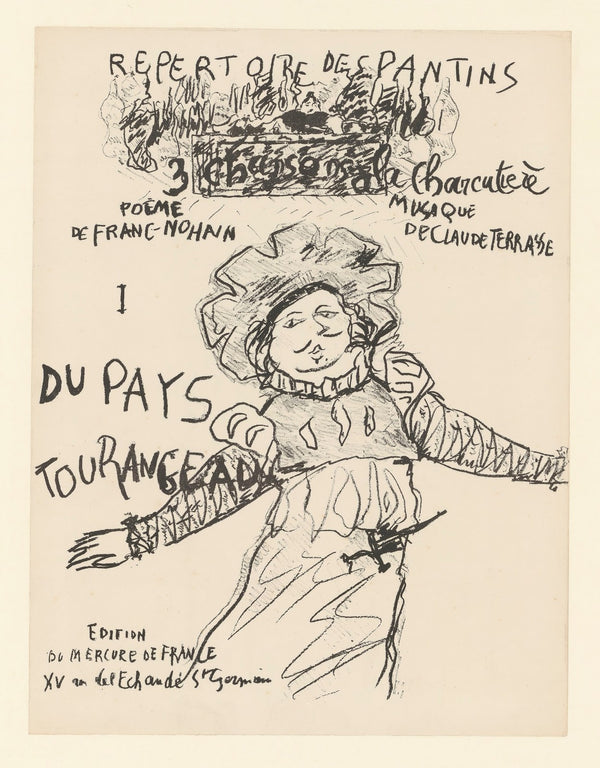 REPERTOIRE DES PANTINS
3 Chansons à la Charcutière
POÈME
DE FRANC-NOHAIN
MUSIQUE
DE CLAUDE TERRASSE
I
DU PAYS
TOURANGEAU
EDITION
DU MERCURE DE FRANCE
XV rue de l'Echaudé St Germain